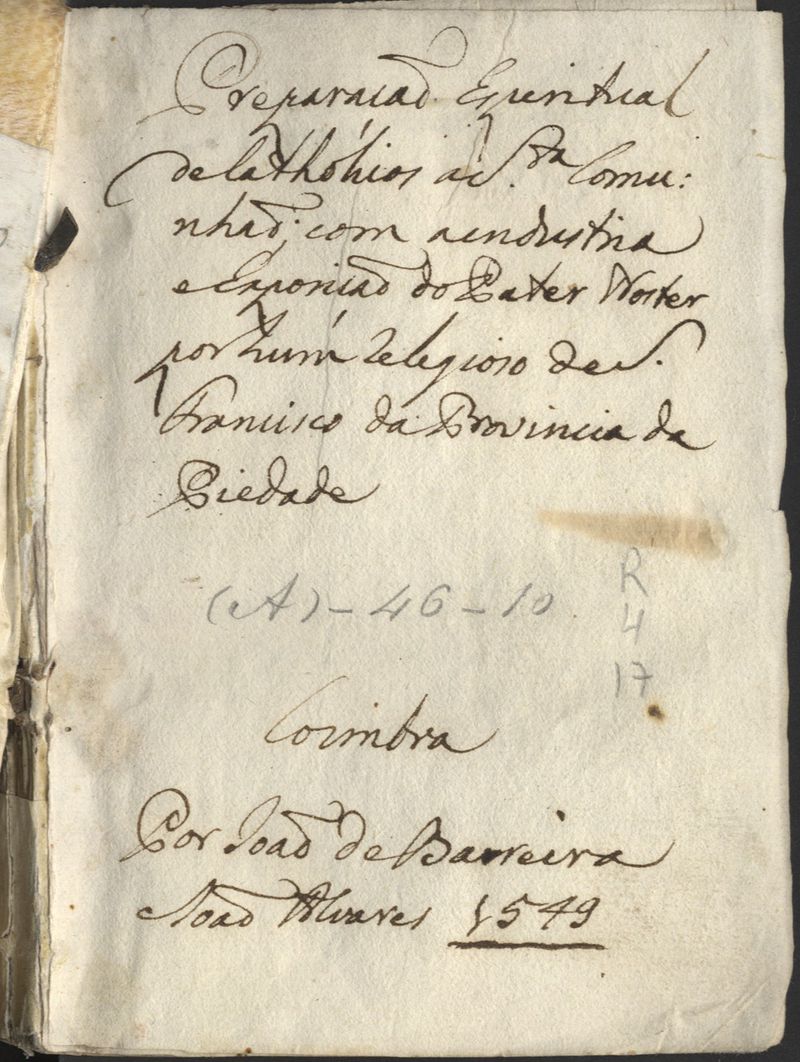 Preparaçaõ Espiritual
de Cathóhios a S.ta Comu:
nhaõ; com a industria
e Exposiçaõ do Pater Noster
por hum Relegioso de S.
Francisco da Provincia da
Piedade
(A) - 46 - 10
R
4
17
Coimbra
Por Joaõ de Barreira
e Joaõ Alvares 1549